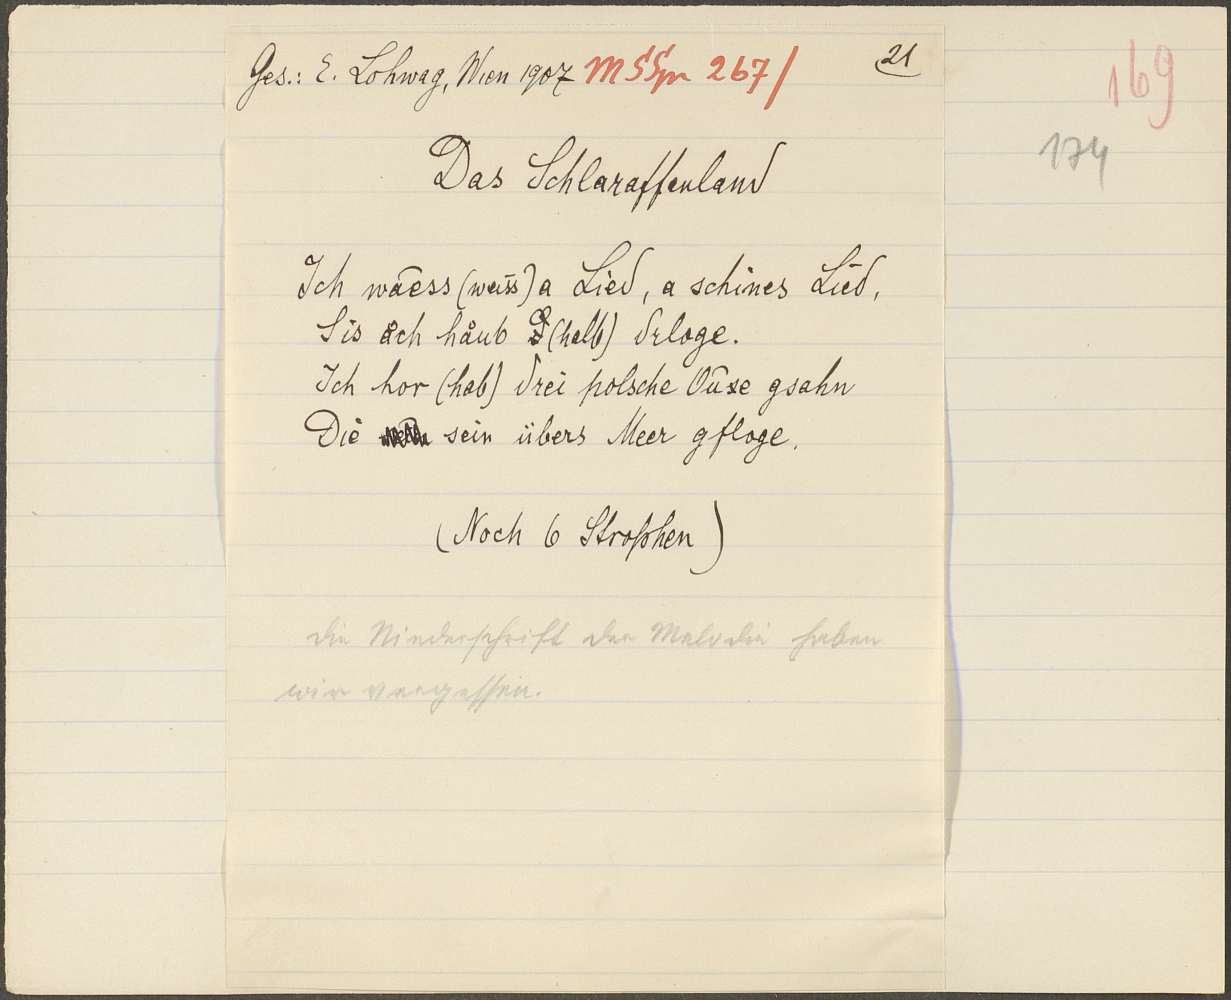 Ges.: E. Lohwag, Wien 1907 MSSpr 267/ 21
169
174
Das Schlaraffenland
Ich wāess (weiss) a Lied, a schines Lied,
S is åch håub (halb) drloge.
Ich hor (hab) drei polsche Oūse gsahn
Die sein übers Meer gfloge.
(Noch 6 Strophen)
Die Niederschrift der Melodie haben
wir vergessen.